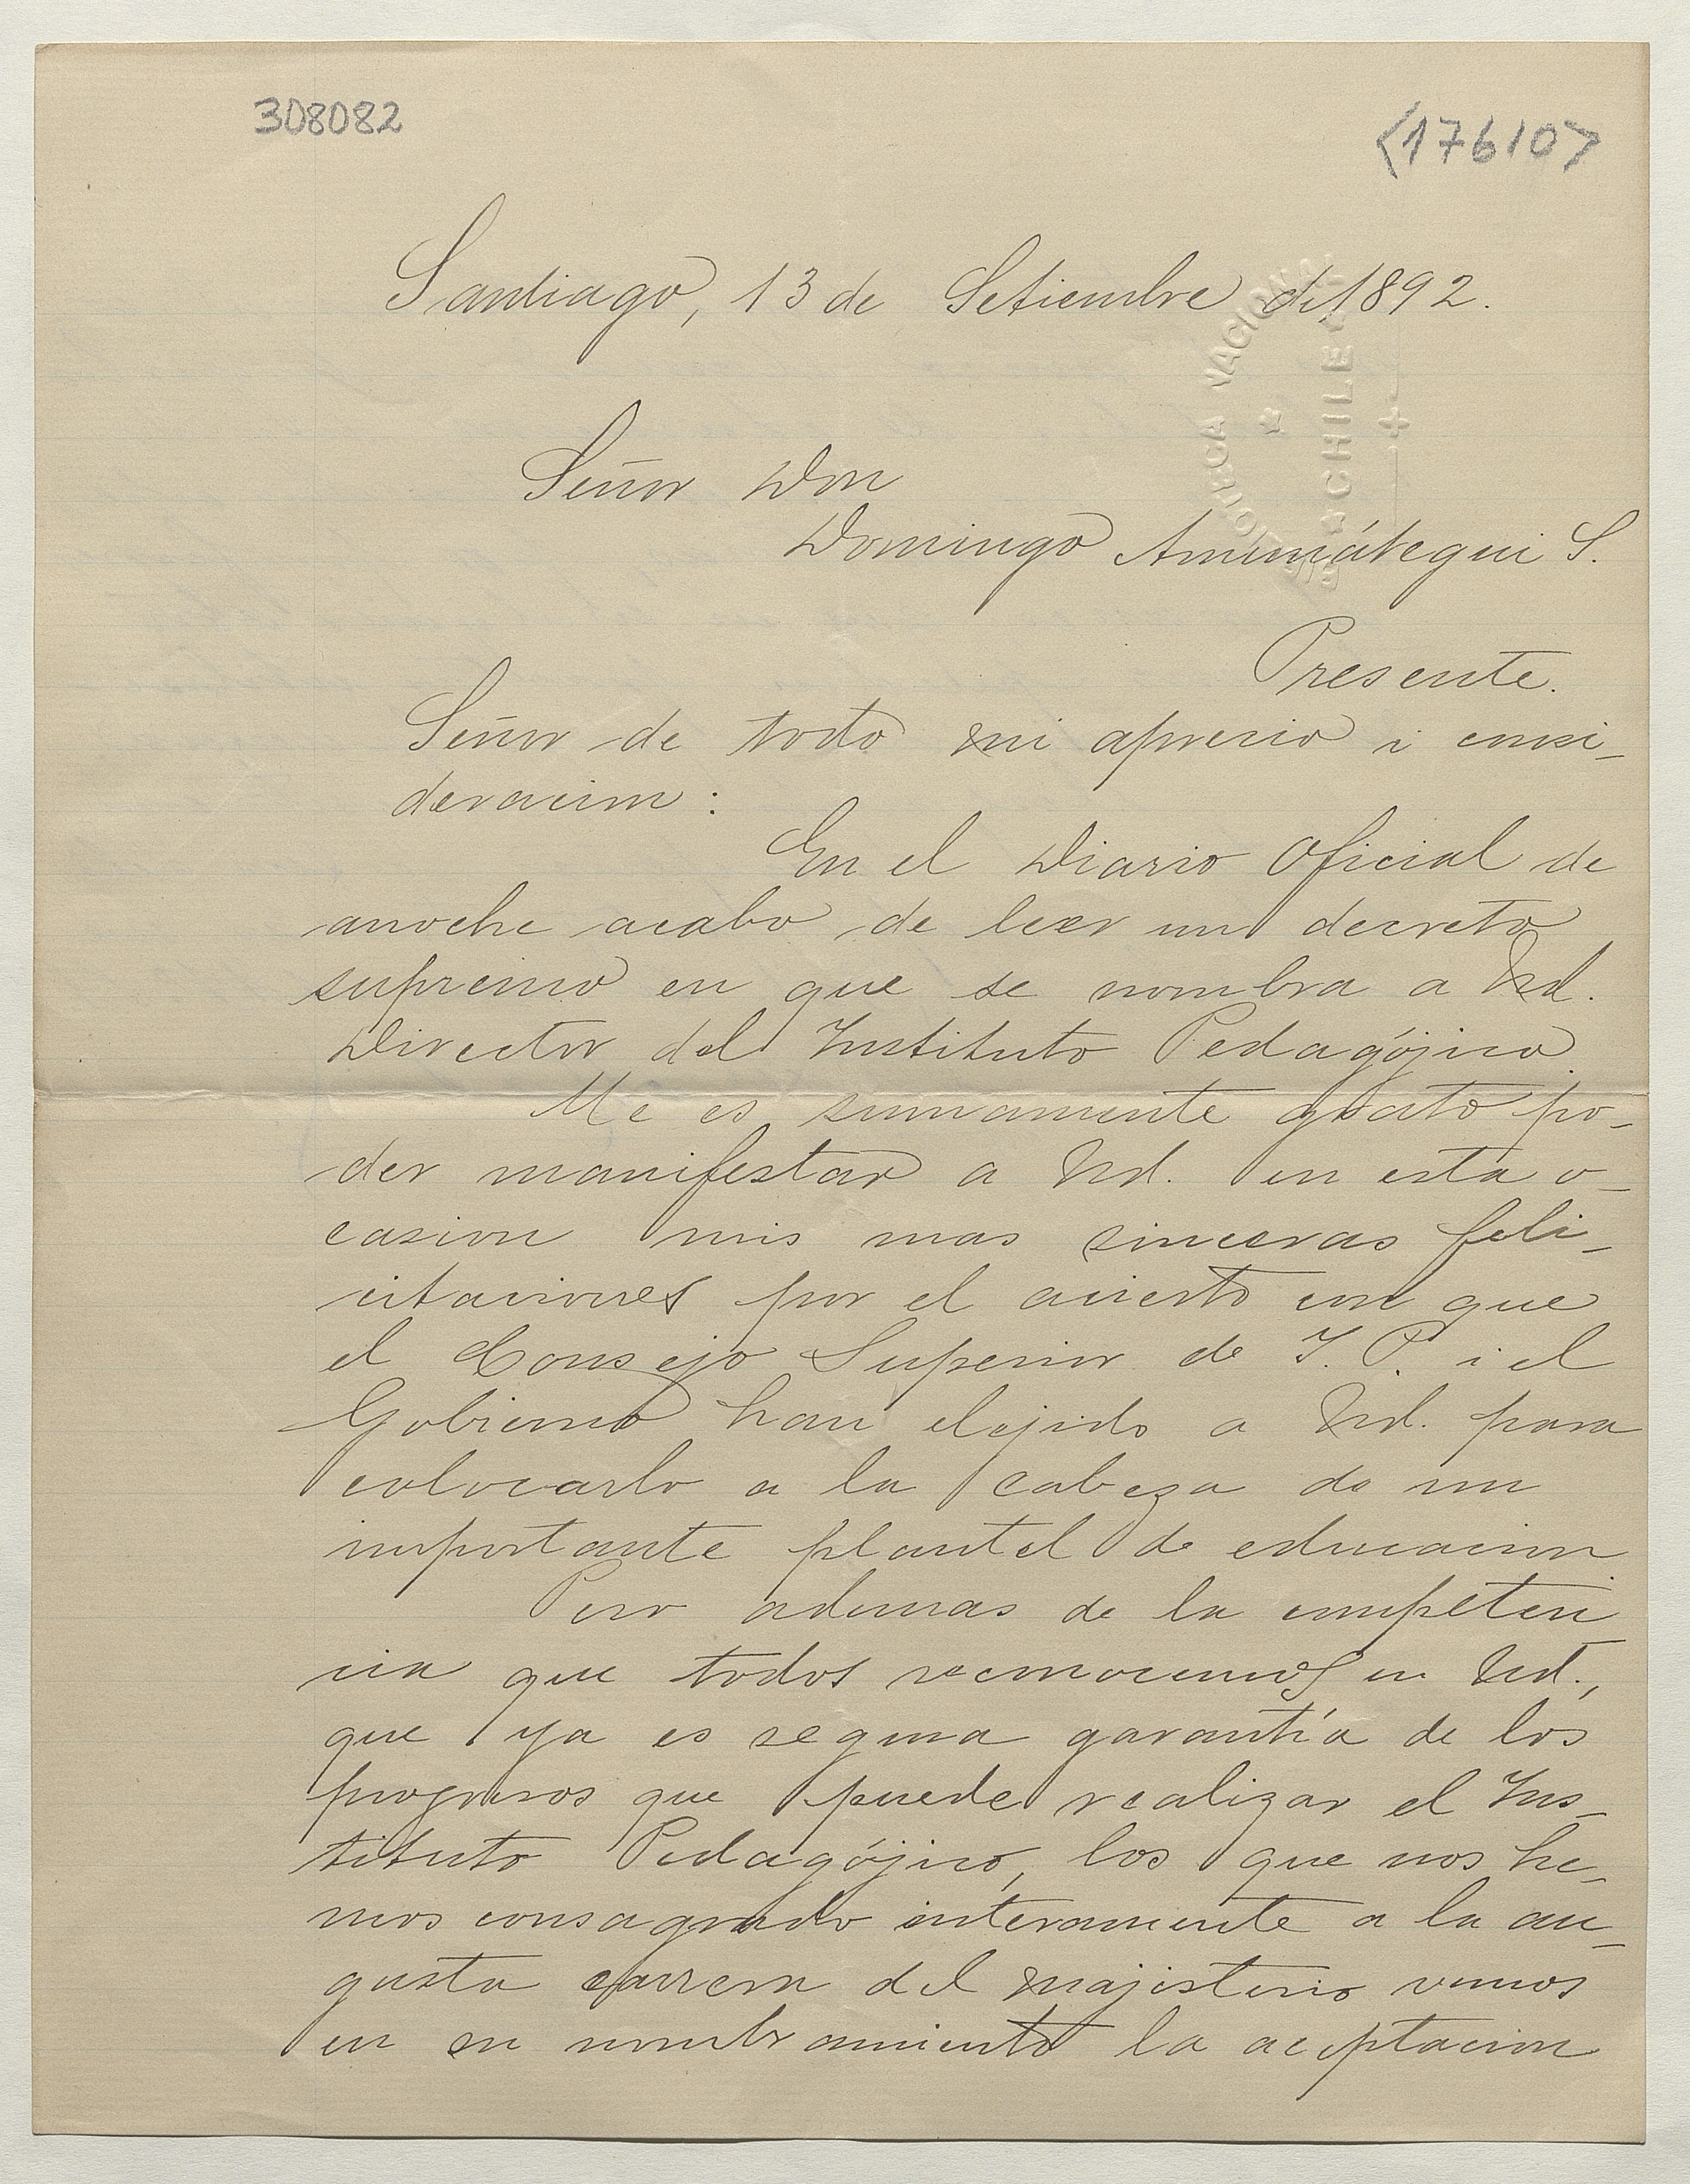 308082
<17610>
Santiago, 13 de Setiembre de 1892.
BIBLIOTECA NACIONAL
CHILE
Señor Don
Domingo Amunátegui S.
Presente.
Señor de todo mi aprecio i consi-
deracion:
En el Diario Oficial de
anoche acabo de leer un decreto
supremo en que se nombra a Ud.
Director del Instituto Pedagójico.
Me es sumamente grato po-
der manifestar a Ud. en esta o-
casion mis mas sinceras feli-
citaciones por el acierto con que
el Consejo Superior de I. P. i el
Gobierno han elejido a Ud. para
colocarlo a la cabeza de un
importante plantel de educacion
Pero ademas de la competen
cia que todos reconocemos en Ud.,
que ya es segura garantía de los
progresos que puede realizar el Ins-
tituto Pedagójico, los que nos he-
mos consagrado enteramente a la au-
gusta carrera del majisterio vemos
en su nombramiento la aceptacion